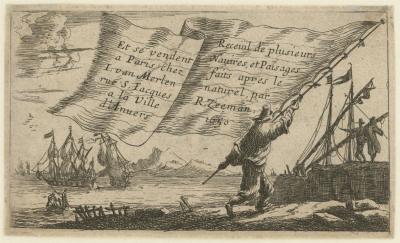 Et se vendent
a Paris, chez
I. van Merlen
rue S. Iacques
a la Ville
d'Anvers
Receuil de plusieurs
Navires, et Païsages
faits apres le
naturel, par
R. Zeeman.
1650